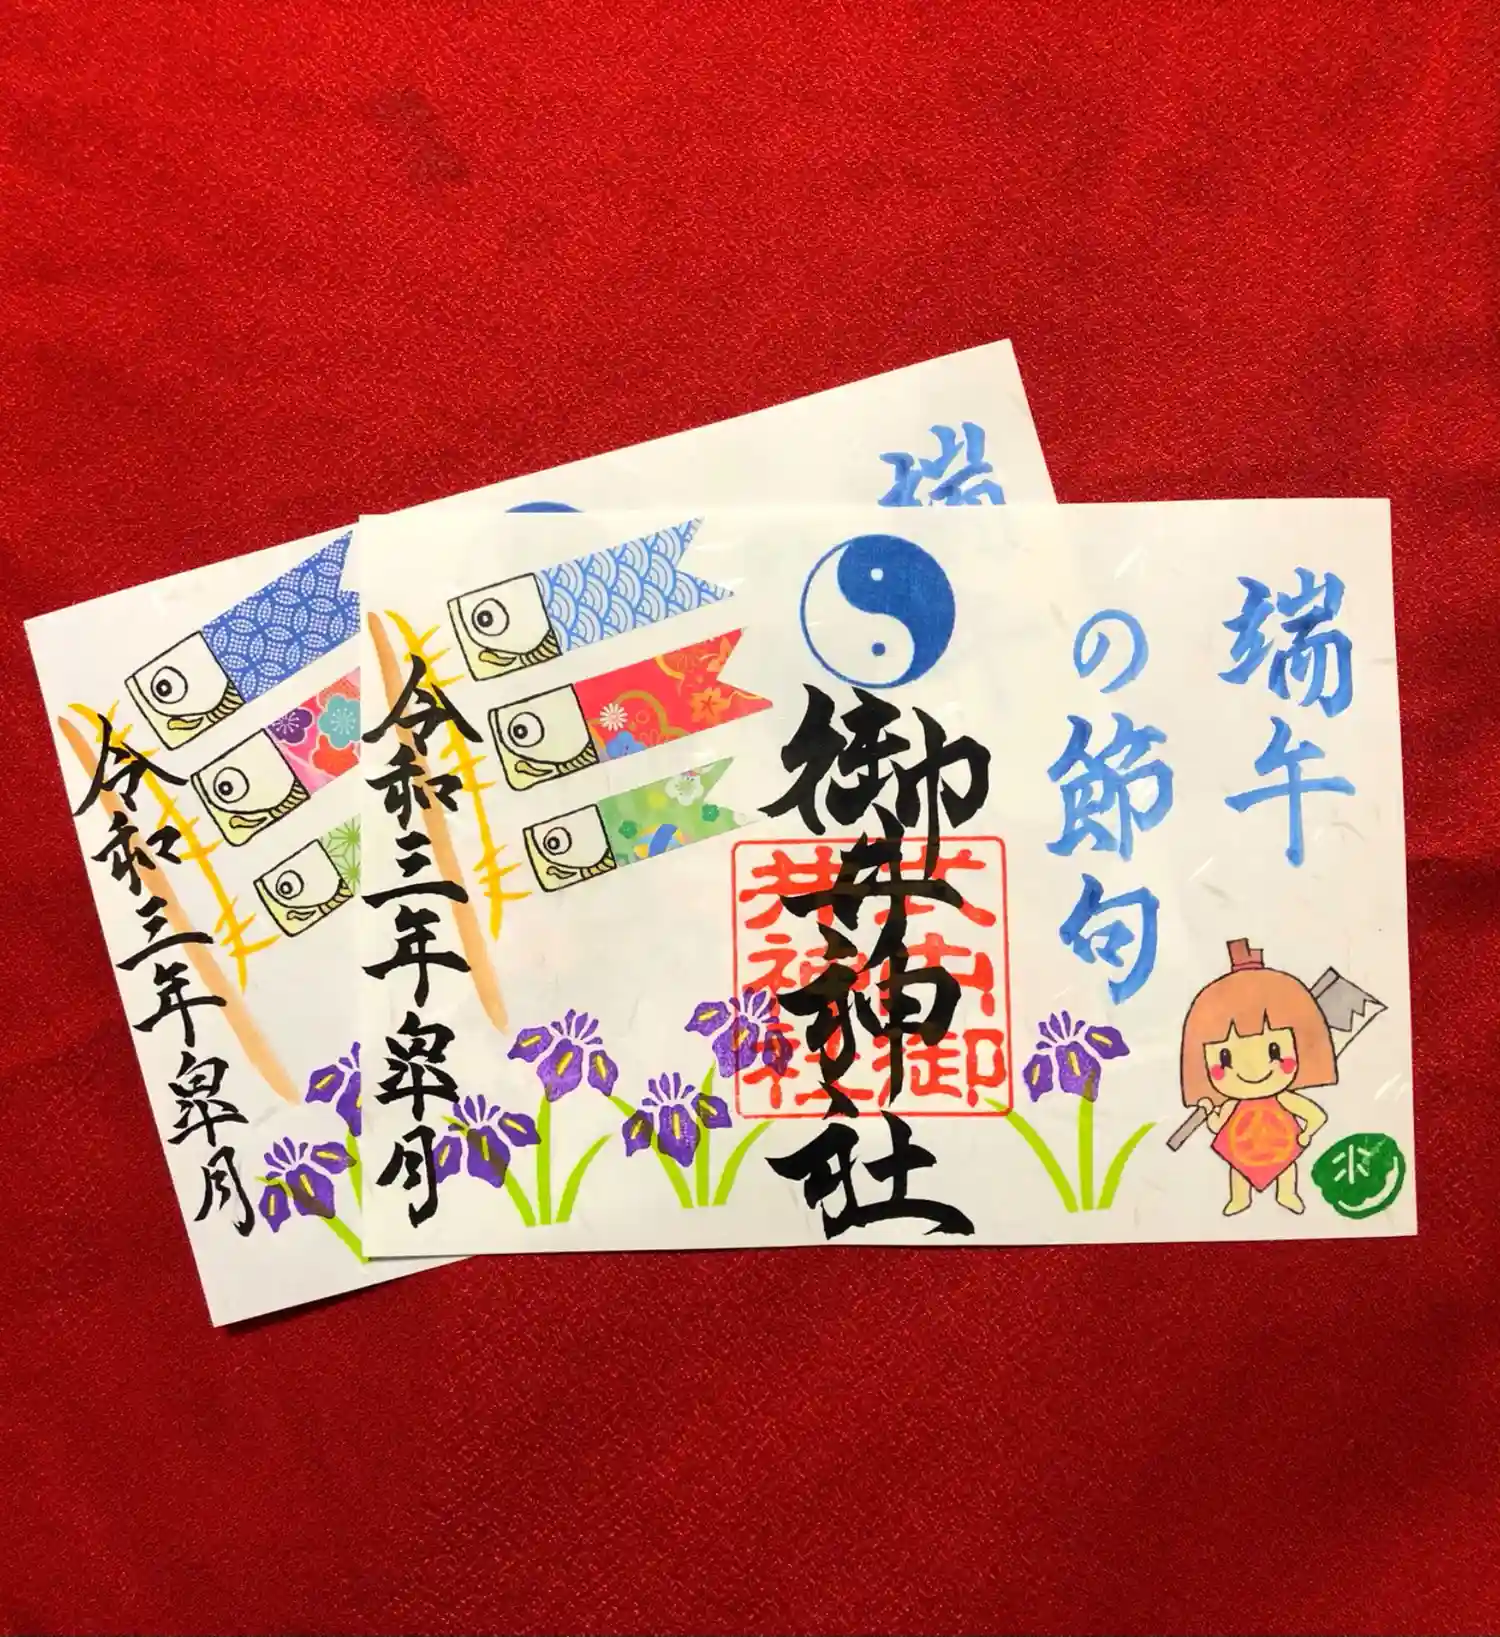 端午
の節句
御井神社
式内御
井神社
令和三年皐月
端
令和三年皐月